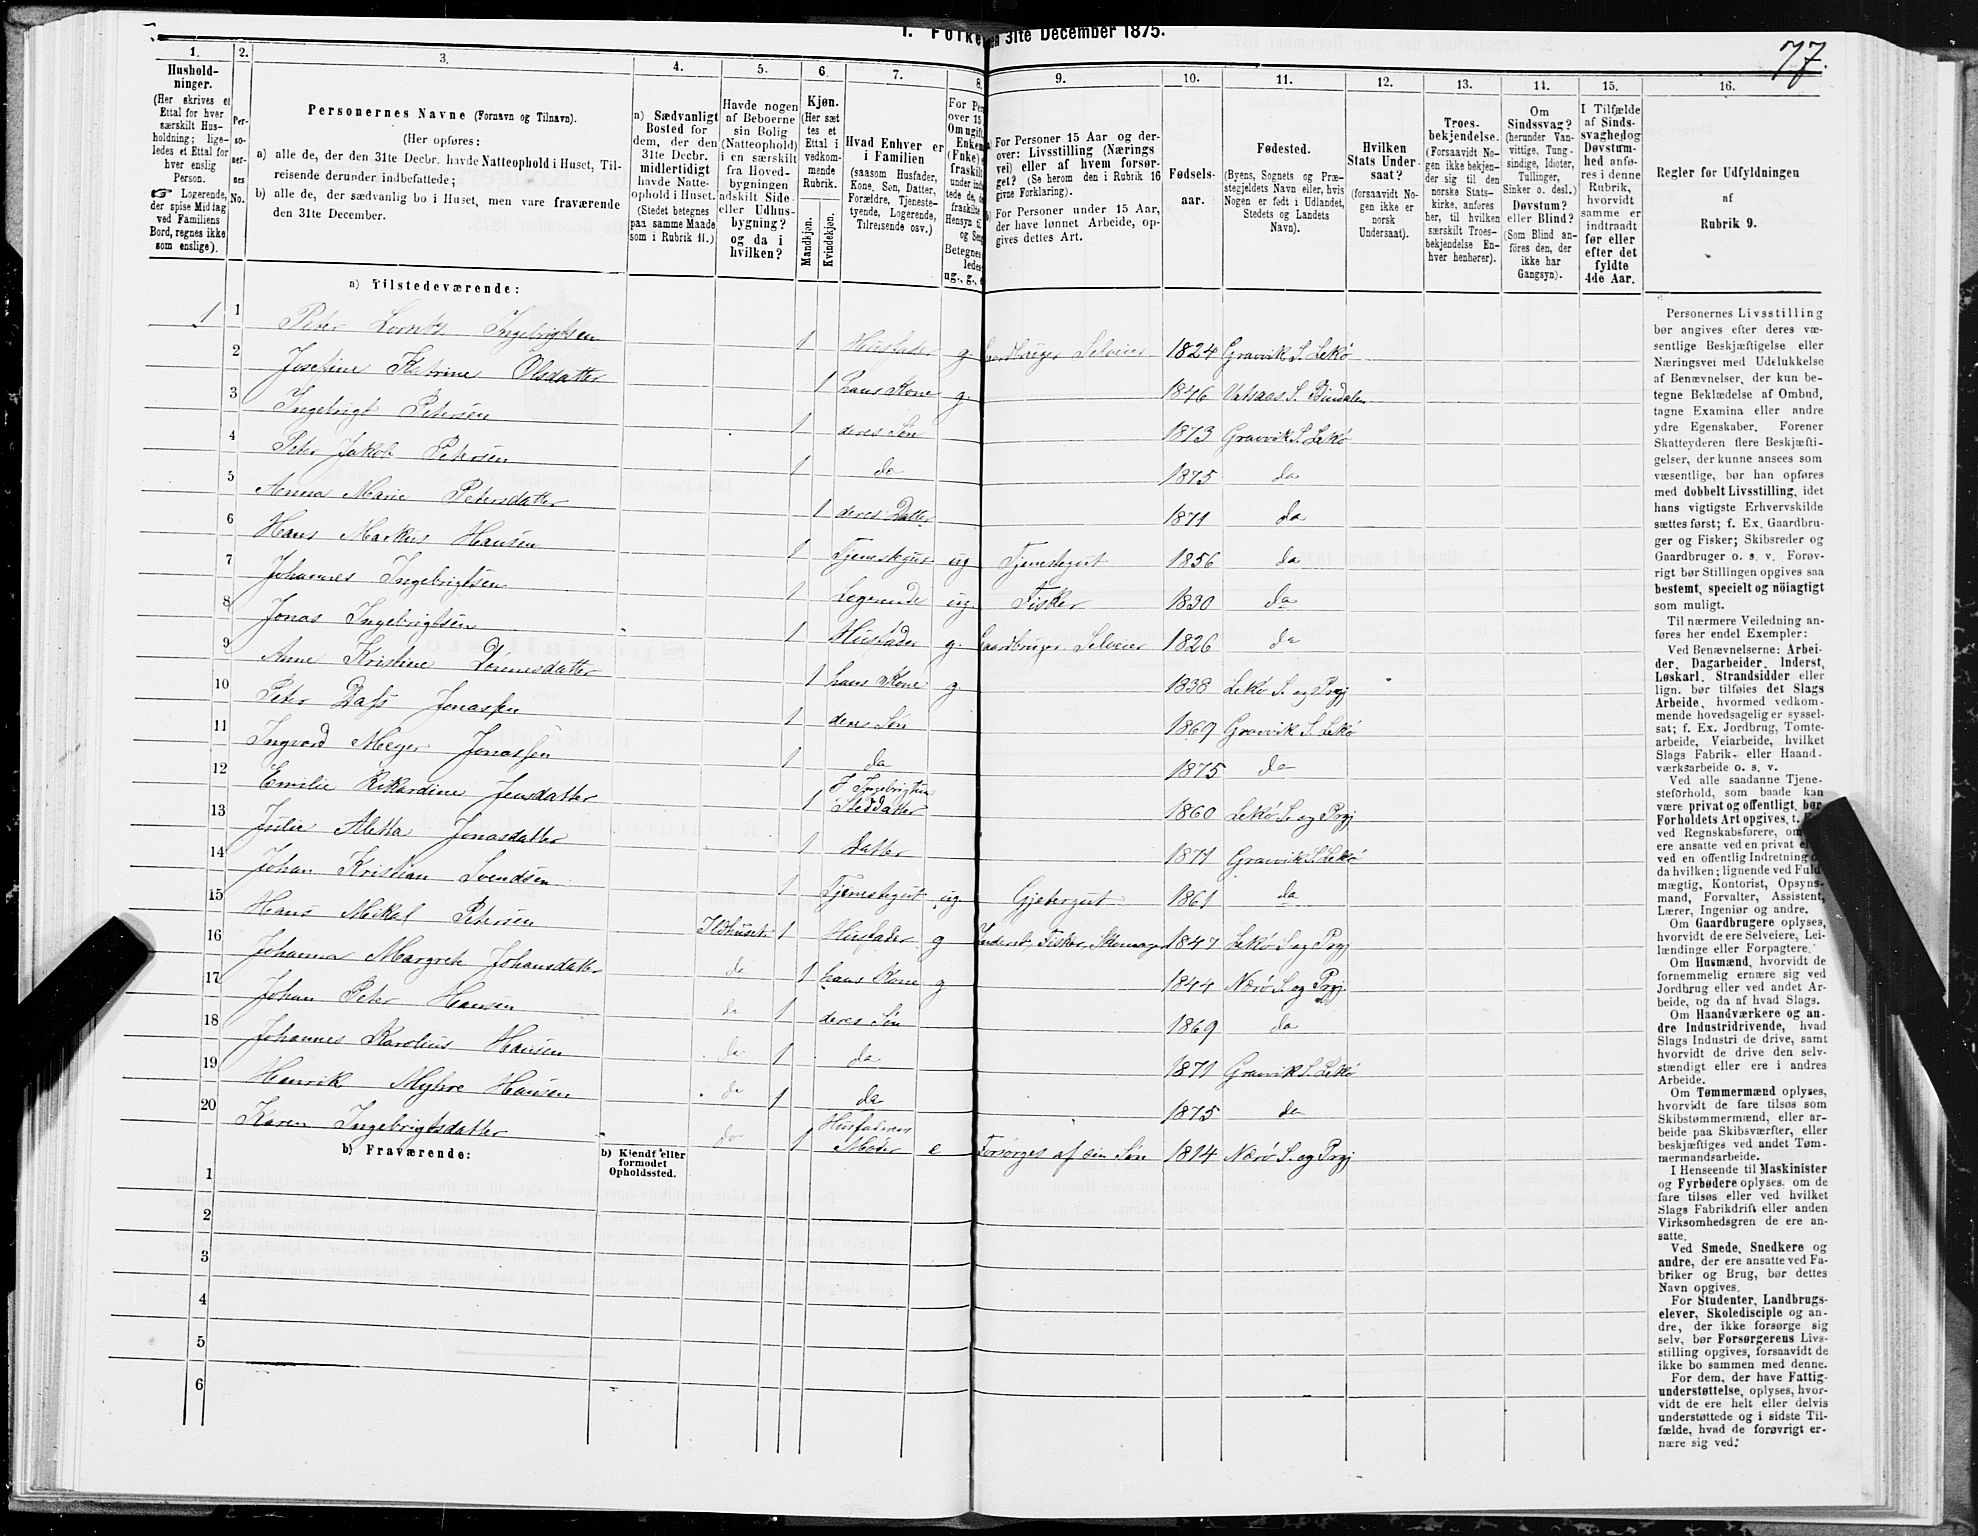 1. Folke en 31te December 1875.
77.
1. 2. 3. 4. 5. 6. 7. 8. 9. 10. 11. 12. 13. 14. 15. 16.
Hushold-
ninger.
(Her skrives et
Ettal for hver
særskilt Hus-
holdning; lige-
ledes et Ettal for
hver enslig
Person.
☞ Logerende,
der spise Middag
ved Familiens
Bord, regnes ikke
som enslige).
Per-
so-
ner-
nes
No.
Personernes Navne (Fornavn og Tilnavn).
(Her opføres:
a) alle de, der den 31te Decbr. havde Natteophold i Huset, Til-
reisende derunder indbefattede;
b) alle de, der sædvanlig bo i Huset, men vare fraværende
den 31te December.
a) Sædvanligt
Bosted for
dem, der den
31te Decbr.
midlertidigt
havde Natte-
ophold i Huset.
(Stedet betegnes
paa samme Maade
som i Rubrik 11.)
Havde nogen
af Beboerne
sin Bolig
(Natteophold)
i en særskilt
fra Hoved-
bygningen
adskilt Side-
eller Udhus-
bygning?
og da i
hvilken?
Kjøn.
(Her sæt
tes et
Ettal i
vedkom-
mende
Rubrik.
Mandkjøn.
Kvindekjøn.
Hvad Enhver er
i Familien
(saasom Husfader,
Kone, Søn, Datter,
Forældre, Tjeneste-
tyende, Logerende,
Tilreisende osv.)
For Per
over 15
Om ugift
Enkem
(Enke) e
fraskilt
Betegnes
ledes
ug., g., e
For Personer 15 Aar og der-
over: Livsstilling (Nærings
vei) eller af hvem forsør-
get? (Se herom den i Rubrik 16
givne Forklaring).
For Personer under 15 Aar,
der have lønnet Arbeide, op-
gives dettes Art.
Fødsels-
aar.
Fødested.
(Byens, Sognets og Præ-
stegjeldets Navn eller, hvis
Nogen er født i Udlandet,
Stedets og Landets
Navn).
Hvilken
Stats Under-
saat?
(forsaavidt No-
gen ikke er
norsk
Undersaat).
Troes-
bekjendelse.
(Forsaavidt No-
gen ikke bekjen-
der sig til den
norske Stats-
kirke, anføres
her, til hvilken
særskilt Troes-
bekjendelse En-
hver henhører).
Om
Sindssvag?
(herunder Van-
vittige, Tung-
sindige, Idioter,
Tullinger,
Sinker o. desl.)
Døvstum?
eller Blind?
(Som Blind an-
føres den, der
ikke har
Gangsyn).
I Tilfælde
af Sinds-
svaghed og
Døvstum-
hed anfø-
res i denne
Rubrik,
hvorvidt
samme er
indtraadt
før eller
efter det
fyldte
4de Aar.
Regler for Udfyldningen
af
Rubrik 9.
a) Tilstedeværende:
1 1 Peter Lorntz Ingebrigtsen 1 Husfader g. Gaardbruger Selveier 1824 Gravvik S. Lekø
2 Josefine Katrine Olsdatter 1 hans Kone g. 1846 Vatsaas S. Bindalen
3 Ingebrigt Petersen 1 deres Søn 1873 Gravvik S. Lekø
4 Peter Jakob Petersen 1 do 1875 da
5 Anna Marie Petersdatter 1 deres Datter 1871 da
6 Hans Markus Hansen 1 Tjenestegut ug Tjenestegut 1856 da
7 Johannes Ingebrigtsen 1 Logerende ug. Fisker 1830 da
8 Jonas Ingebrigtsen 1 Husfader g. Gaardbruger Selveier 1826 da
9 Anne Kristine Dønnesdatter 1 hans Kone g 1838 Lekø S. og Prgj
10 Peter Dass Jonassen 1 deres Søn 1869 Gravvik S. Lekø
11 Ingvard Meyer Jonassen 1 da 1875 da
12 Emilie Rikardine Jensdatter 1 J Ingebrigtsen
Steddatter 1860 Lekø S. og Prgj
13 Julie Aletta Jonasdatter 1 Datter 1871 Gravvik S. Lekø
14 Johan Kristian Svendsen 1 Tjenestegut ug Gjetergut 1861 da
15 Hans Mikal Petersen Ildhuset 1 Husfader g Inderst, Fisker, Skomager 1847 Lekø S. og Prgj
16 Johanna Margrete Johansdatter da 1 hans Kone g 1844 Nærø S. og Prgj.
17 Johan Peter Hansen da 1 deres Søn 1869 da
18 Johannes Karolius Hansen da 1 da 1871 Gravvik S. Lekø
19 Henrik Myhre Hansen da 1 da 1875 da
20 Karen Ingebrigtsdatter do 1 Husfaderens
Moder e Forsørges af sin Søn 1814 Nærø S. og Prgj
b) Fraværende:
b) Kjendt eller
formodet
Opholdssted.
1
2
3
4
5
6
Personernes Livsstilling
bør angives efter deres væ-
sentlige Beskjæftigelse eller
Næringsvei med Udelukkelse
af Benævnelser, der kun be-
tegne Beklædelse af Ombud,
tagne Examina eller andre
ydre Egenskaber. Forener
Skatteyderen flere Beskjæfti-
gelser, der kunne ansees som
væsentlige, bør han opføres
med dobbelt Livsstilling, idet
hans vigtigste Erhvervskilde
sættes først; f. Ex. Gaardbru-
ger og Fisker; Skibsreder og
Gaardbruger o. s. v. Forøv-
rigt bør Stillingen opgives saa
bestemt, specielt og nöiagtigt
som muligt.
Til nærmere Veiledning an-
føres her endel Exempler:
Ved Benævnelserne: Arbei-
der, Dagarbeider, Inderst,
Løskarl, Strandsidder eller
lign. bør tilføies det Slags
Arbeide, hvormed vedkom-
mende hovedsagelig er syssel-
sat; f. Ex. Jordbrug, Tomte-
arbeide, Veiarbeide, hvilket
Slags Fabrik- eller Haand-
værksarbeide o. s. v.
Ved alle saadanne Tjene-
steforhold, som baade kan
være privat og offentligt, bør
Forholdets Art opgives, t.
ved Regnskabsførere, om
ere ansatte ved en privat el
ved en offentlig Indretning
da hvilken; lignende ved Fuld
mægtig, Kontorist, Opsyns-
mand, Forvalter, Assistent,
Lærer, Ingeniør og andre.
Om Gaardbrugere oplyses,
hvorvidt de ere Selveiere, Lei-
lændinge eller Forpagtere.
Om Husmænd, hvorvidt de
fornemmelig ernære sig ved
Jordbrug eller ved andet Ar-
beide, og da af hvad Slags.
Om Haandværkere og an-
dre Industridrivende, hvad
Slags Industri de drive, samt
hvorvidt de drive den selv-
stændigt eller ere i andres
Arbeide.
Om Tømmermænd oplyses,
hvorvidt de fare tilsøs som
Skibstømmermænd, eller ar-
beide paa Skibsværfter, eller
beskjæftiges ved andet Tøm-
mermandsarbeide.
I Henseende til Maskinister
og Fyrbødere oplyses, om de
fare tilsøs eller ved hvilket
Slags Fabrikdrift eller anden
Virksomhedsgren de ere an-
satte.
Ved Smede, Snedkere og
andre, der ere ansatte ved Fa-
briker og Brug, bør dettes
Navn opgives.
For Studenter, Landbrugs-
elever, Skoledisciple og an-
dre, der ikke forsørge sig
selv, bør Forsørgerens Livs-
stilling opgives, forsaavidt de
ikke bo sammen med denne.
For dem, der have Fattig-
understøttelse, oplyses, hvor-
vidt de ere helt eller delvis
understøttede og i sidste Til-
fælde, hvad de forøvrigt er-
nære sig ved.